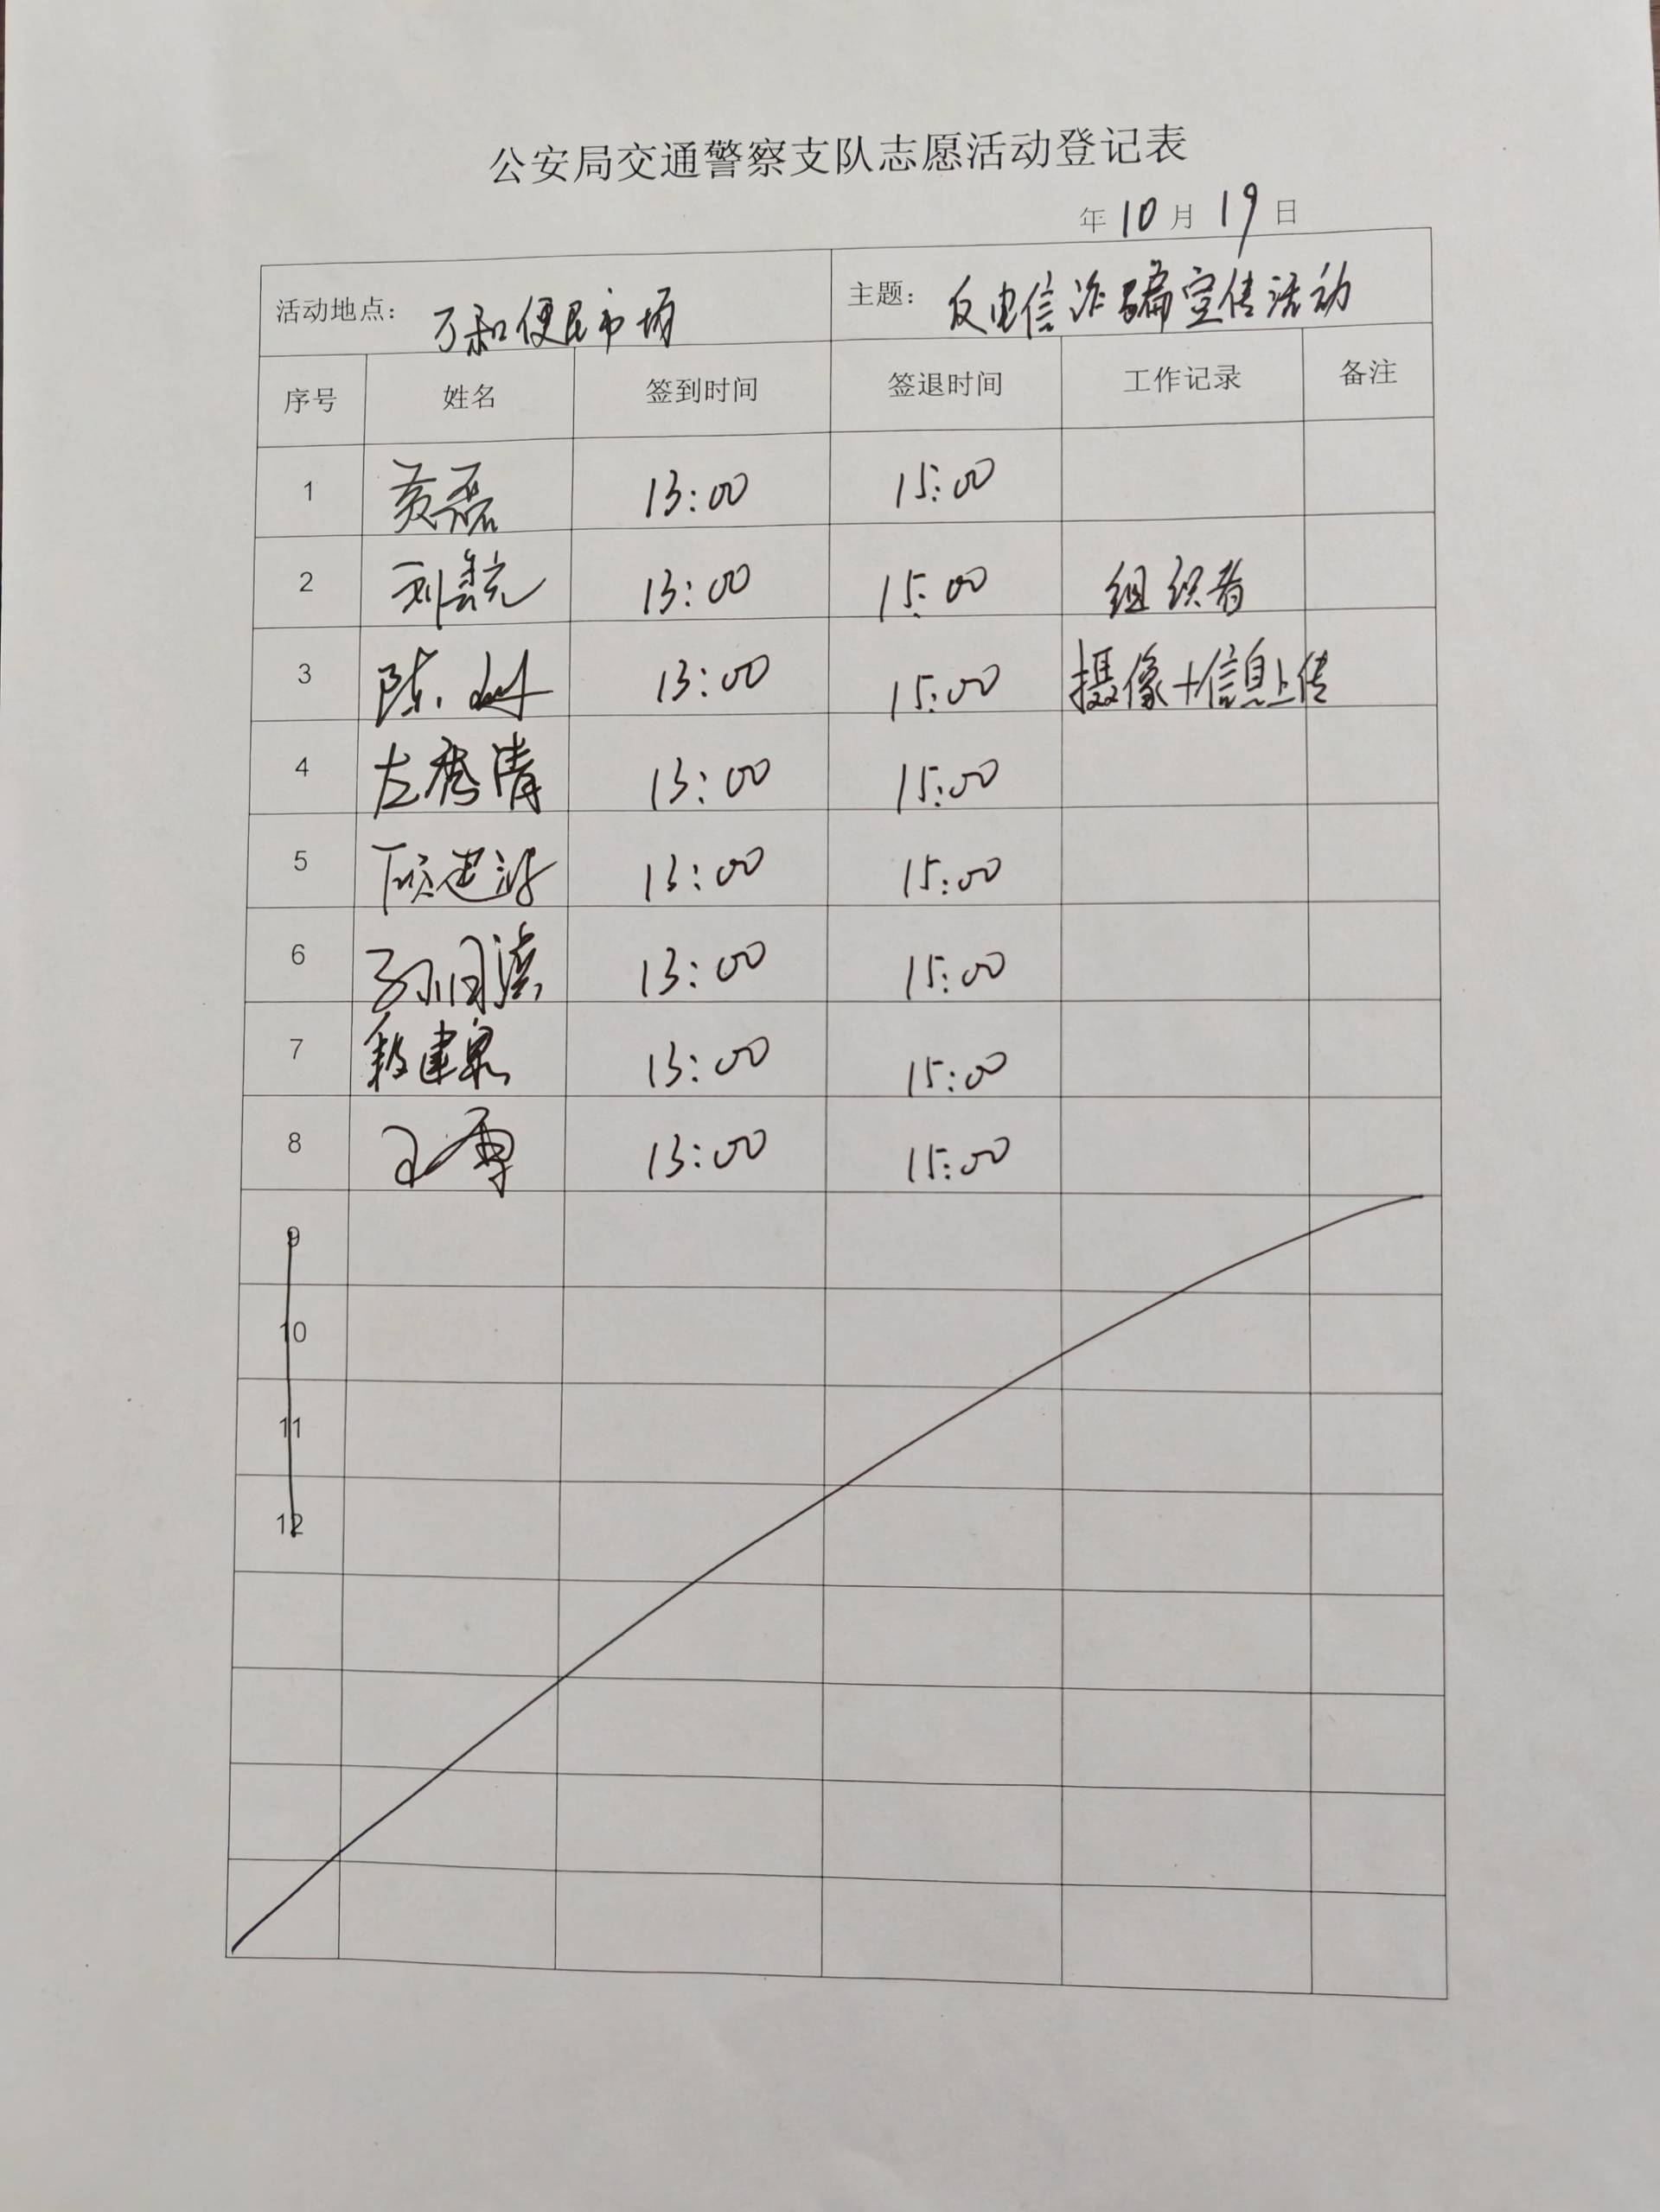 公安局交通警察支队志愿活动登记表
年 10 月 19 日
活动地点: 万和便民市场 主题: 反电信诈骗宣传活动
序号 姓名 签到时间 签退时间 工作记录 备注
1 黄磊 13:00 15:00
2 刘 13:00 15:00 组织者
3 陈 13:00 15:00 摄像+信息上传
4 左秀清 13:00 15:00
5 13:00 15:00
6 孙 13:00 15:00
7 段建泉 13:00 15:00
8 王 13:00 15:00
9
10
11
12